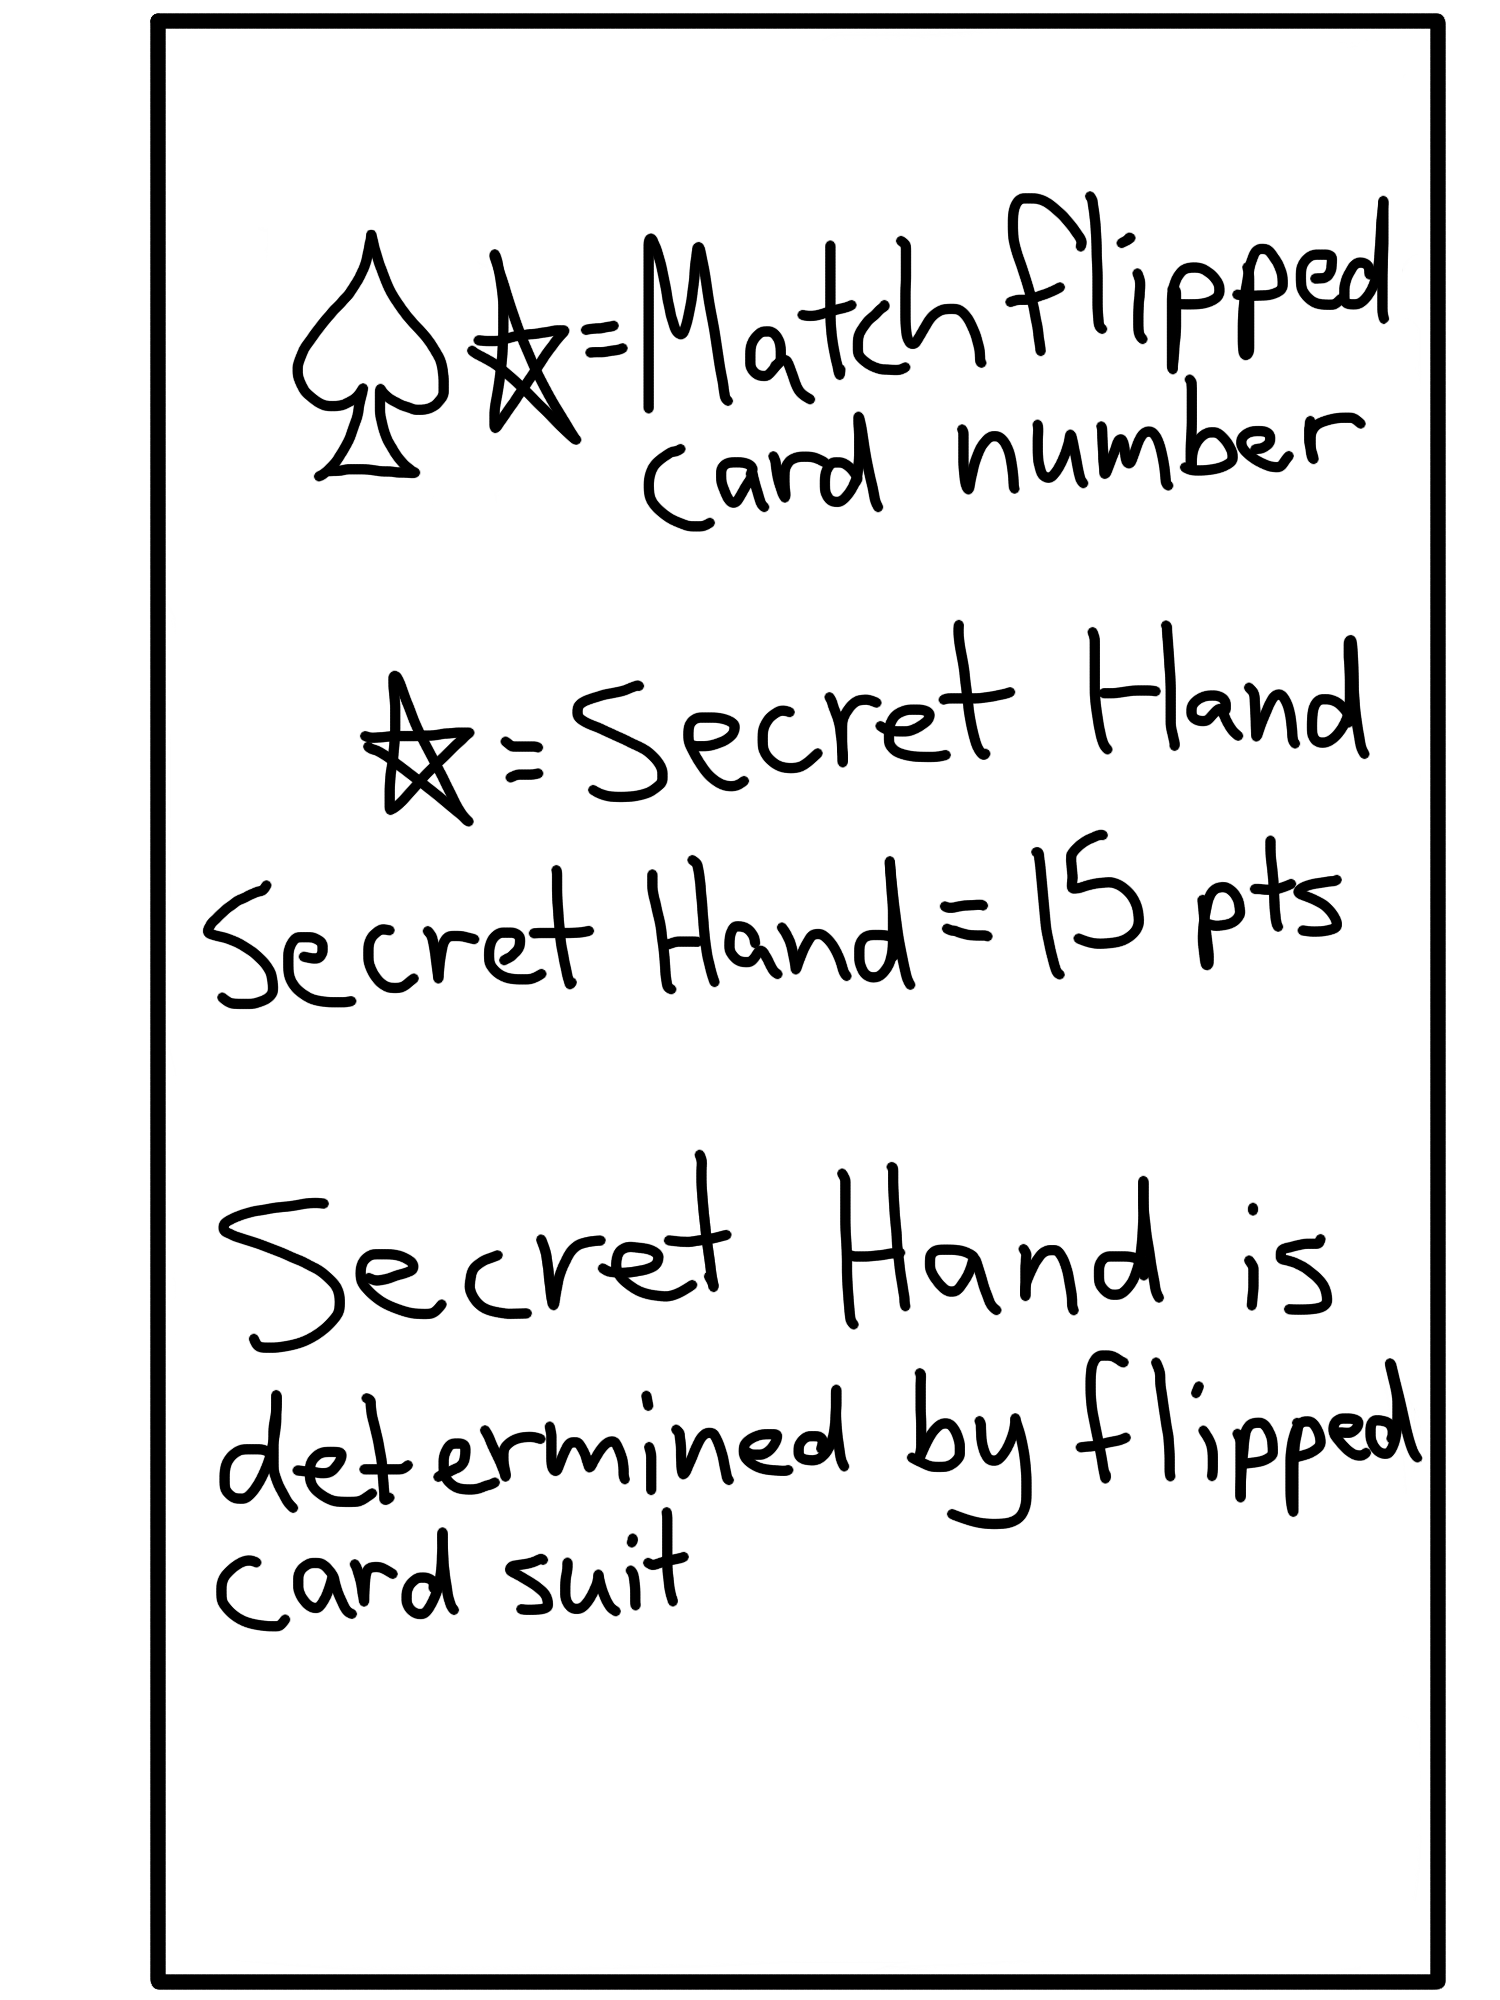 ♤☆=Match flipped
card number
☆=Secret Hand
Secret Hand=15 pts
Secret Hand is
determined by flipped
card suit